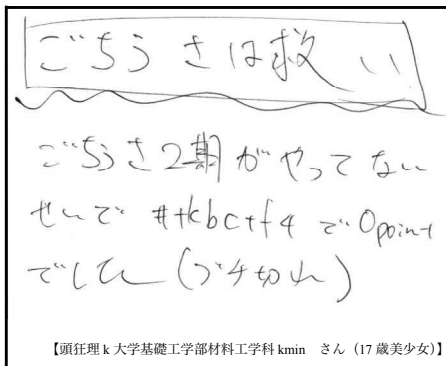 ごちうさは救い
ごちうさ2期がやってない
せいで #tkbctf4 で 0point
でした(ブチ切れ)
【頭狂理 k 大学基礎工学部材料工学科 kmin　さん（17 歳美少女）】